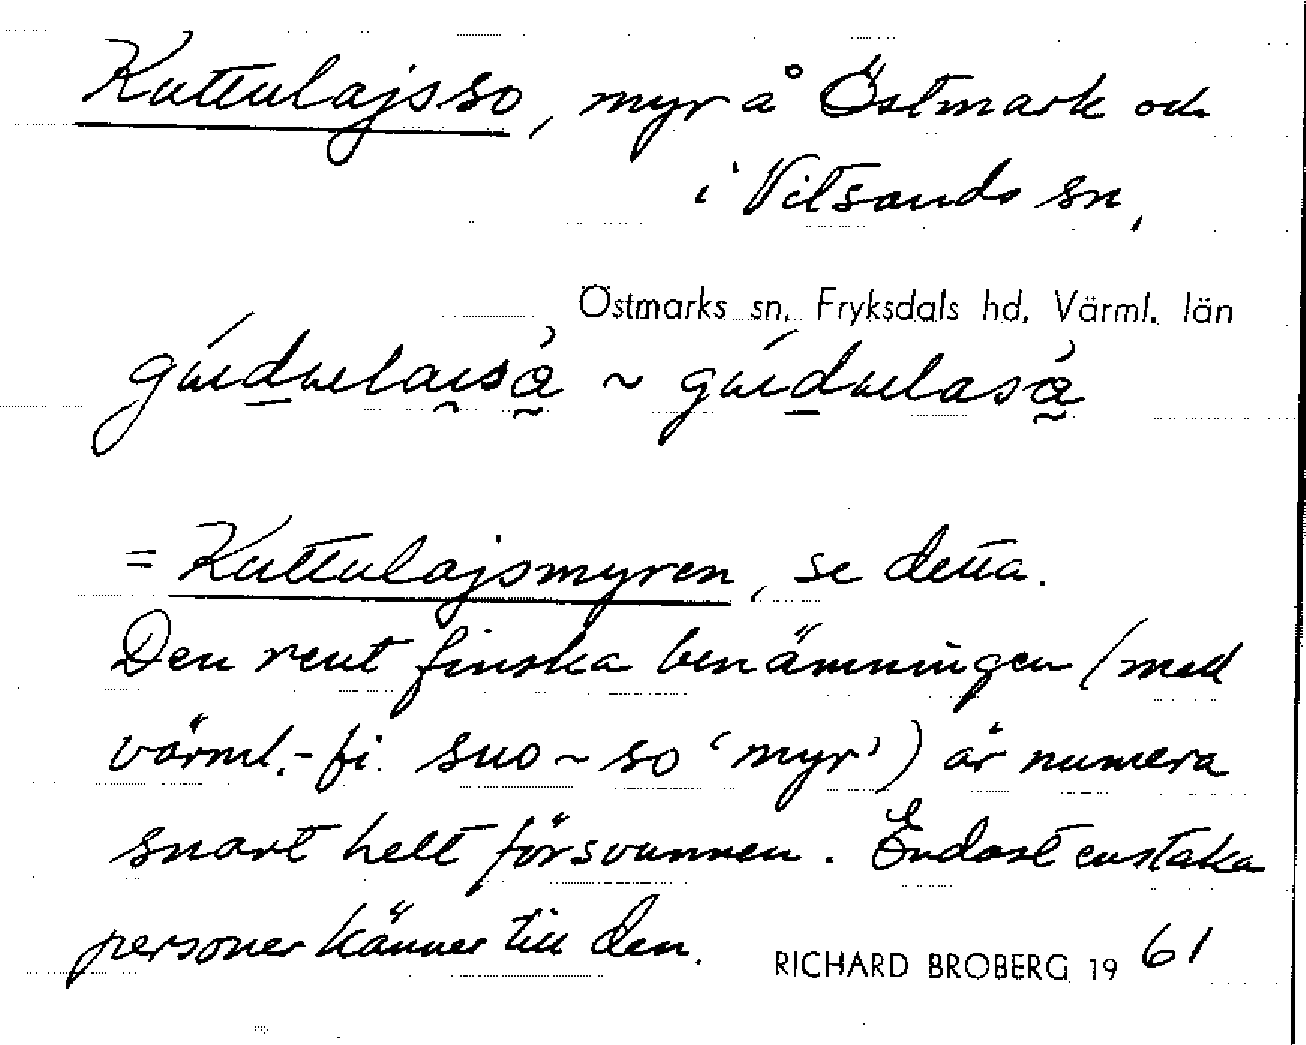 Kuttulajsso, myr å Östmark och
i Vitsands sn,
Östmarks sn, Fryksdals hd, Värml. län
= Kuttulajsmyren, se detta.
Den rent finska benämningen (med
värml.-fi. suo ~ so 'myr') är numera
snart helt försvunnen. Endast enstaka
personer känner till den.
RICHARD BROBERG 1961